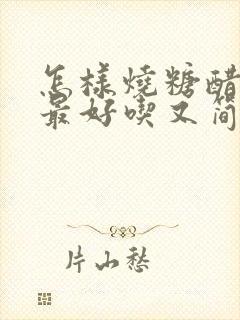 怎样燒糖醋
最好喫又简
片山愁